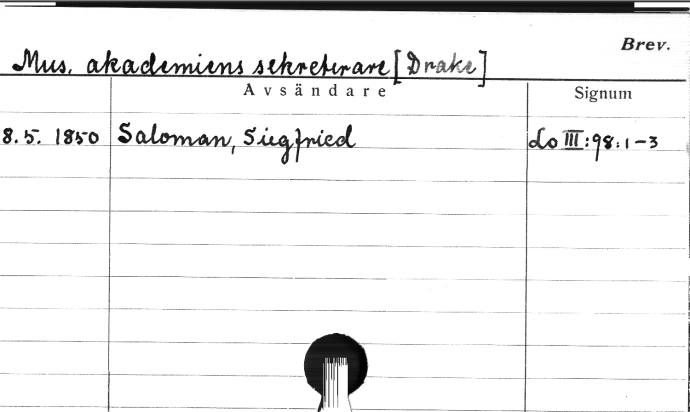 Brev.
Mus. akademiens sekreterare [Drake]
Avsändare Signum
8.5. 1850 Saloman, Siegfried Lo III:98:1-3